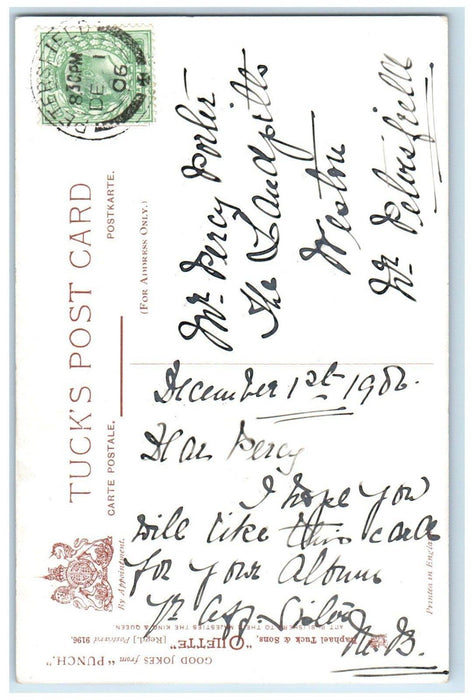 PETERSFIELD
8.30 PM
DE 1
06
TUCK'S POST CARD
CARTE POSTALE. POSTKARTE.
(FOR ADDRESS ONLY.)
Mr. Percy
The Sandpitts
Weston
Nr. Petersfield
December 1st 1906.
Dear Percy
I hope you
will like this card
for your Album
Yr aff.
By Appointment.
GOOD JOKES from "PUNCH."
"OILETTE" [Regd.] Postcard 9196.
Raphael Tuck & Sons,
ART PUBLISHERS TO THEIR MAJESTIES THE KING & QUEEN
Printed in England